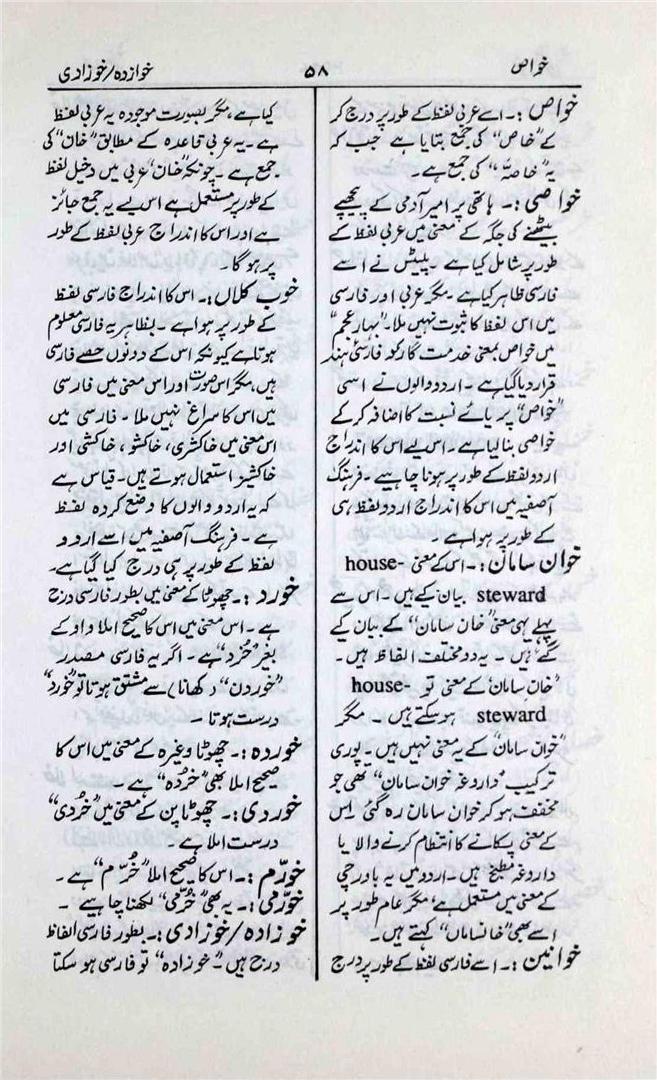 خواص
۵۸
خوازدہ/خوزادی
خواص :۔ اسے عربی لفظ کے طور پر درج کر
کے ”خاص“ کی جمع بتایا ہے جب کہ
یہ ”خاصّہ“ کی جمع ہے۔
خواصی :۔ ہاتھی پر امیر آدمی کے پیچھے
بیٹھنے کی جگہ کے معنی میں عربی لفظ کے
طور پر شامل کیا ہے۔ پلیٹس نے اسے
فارسی ظاہر کیا ہے۔ مگر عربی اور فارسی
میں اس لفظ کا ثبوت نہیں ملا۔ ”بہارِ عجم“
میں خواص بمعنی خدمت گار کو فارسیٔ ہند
قرار دیا گیا ہے۔ اردو والوں نے اسی
”خواص“ پر یائے نسبت کا اضافہ کر کے
خواصی بنا لیا ہے۔ اس لیے اس کا اندراج
اردو لفظ کے طور پر ہونا چاہیے۔ فرہنگ
آصفیہ میں اس کا اندراج اردو لفظ ہی
کے طور پر ہوا ہے۔
خوان سامان :۔ اس کے معنی house-
steward بیان کیے ہیں۔ اس سے
پہلے یہی معنی ”خان سامان“ کے بیان کیے
گئے ہیں۔ یہ دو مختلف الفاظ ہیں۔
”خان سامان“ کے معنی تو house-
steward ہو سکتے ہیں۔ مگر
”خوان سامان“ کے یہ معنی نہیں ہیں۔ پوری
ترکیب ”داروغہ خوان سامان“ تھی جو
مخفف ہو کر خوان سامان رہ گئی اس
کے معنی پکانے کا انتظام کرنے والا یا
داروغہ مطبخ ہیں۔ اردو میں یہ باورچی
کے معنی میں مستعمل ہے، مگر عام طور پر
اسے بھی ”خانساماں“ کہتے ہیں۔
خوانین :۔ اسے فارسی لفظ کے طور پر درج
کیا ہے، مگر بصورت موجودہ یہ عربی لفظ
ہے۔ یہ عربی قاعدہ کے مطابق ”خان“ کی
جمع ہے۔ چونکہ ”خان“ عربی میں دخیل لفظ
کے طور پر مستعمل ہے اس لیے یہ جمع جائز
ہے اور اس کا اندراج عربی لفظ کے طور
پر ہو گا۔
خوب کلاں :۔ اس کا اندراج فارسی لفظ
کے طور پر ہوا ہے۔ بظاہر یہ فارسی معلوم
ہوتا ہے کیونکہ اس کے دونوں حصے فارسی
ہیں، مگر اس صورت اور اس معنی میں فارسی
میں اس کا سراغ نہیں ملا۔ فارسی میں
اس معنی میں خاکشری، خاکشو، خاکشی اور
خاکشیر استعمال ہوتے ہیں۔ قیاس ہے
کہ یہ اردو والوں کا وضع کردہ لفظ
ہے۔ فرہنگ آصفیہ میں اسے اردو
لفظ کے طور پر ہی درج کیا گیا ہے۔
خورد :۔ چھوٹا کے معنی میں بطور فارسی درج
ہے۔ اس معنی میں اس کا صحیح املا واو کے
بغیر ”خُرد“ ہے۔ اگر یہ فارسی مصدر
”خوردن“ (کھانا) سے مشتق ہوتا تو ”خورد“
درست ہوتا۔
خوردہ :۔ چھوٹا وغیرہ کے معنی میں اس کا
صحیح املا بھی ”خُردہ“ ہے۔
خوردی :۔ چھوٹا پن کے معنی میں ”خُردی“
درست املا ہے۔
خورّم :۔ اس کا صحیح املا ”خُرّم“ ہے۔
خورّمی :۔ یہ بھی ”خُرّمی“ لکھنا چاہیے۔
خوزادہ/خوزادی :۔ بطور فارسی الفاظ
درج ہیں۔ ”خوزادہ“ تو فارسی ہو سکتا